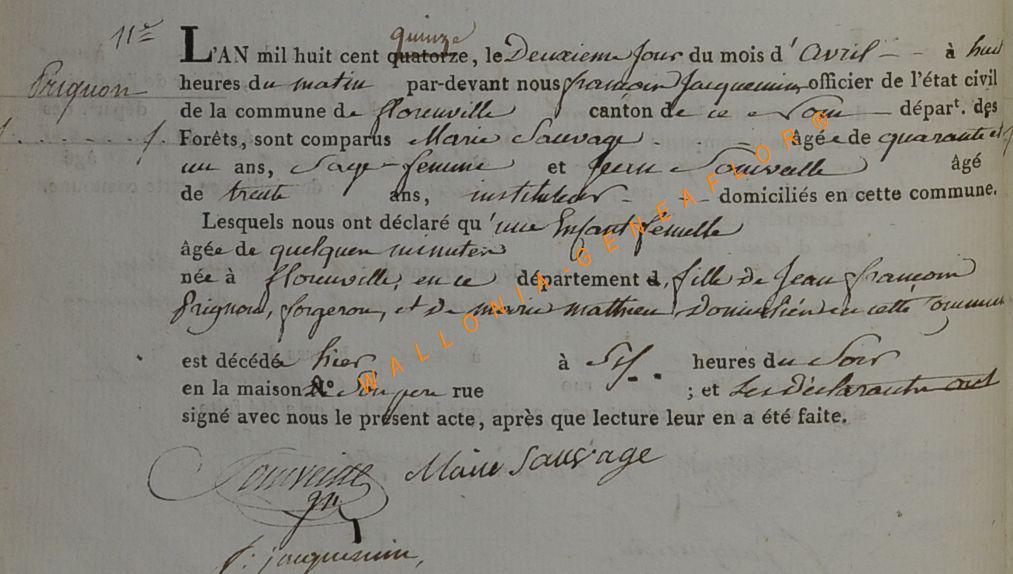 11e quinze
L'AN mil huit cent quatorze, le Deuxieme jour du mois d' avril à huit
Prignon heures du matin par-devant nous françois Jacquemin officier de l'état civil
de la commune de florenville canton de ce nom départ. des
f. Forêts, sont comparus Marie Sauvage âgée de quarante et
un ans, Sage-femme et Jean âgé
de trente ans, instituteur domiciliés en cette commune.
Lesquels nous ont déclaré qu'une Enfant femelle
âgée de quelques minutes
née à florenville, en ce département d, fille de Jean françois
Prignon, forgeron, et de marie mathieu Domiciliés en cette Commune
est décédée hier à Six heures du Soir
en la maison de Son pere rue ; et Les Déclarants ont
signé avec nous le présent acte, après que lecture leur en a été faite.
Marie Sauvage
f: jacquemin,
WALLONIA-GENEAFLOR®